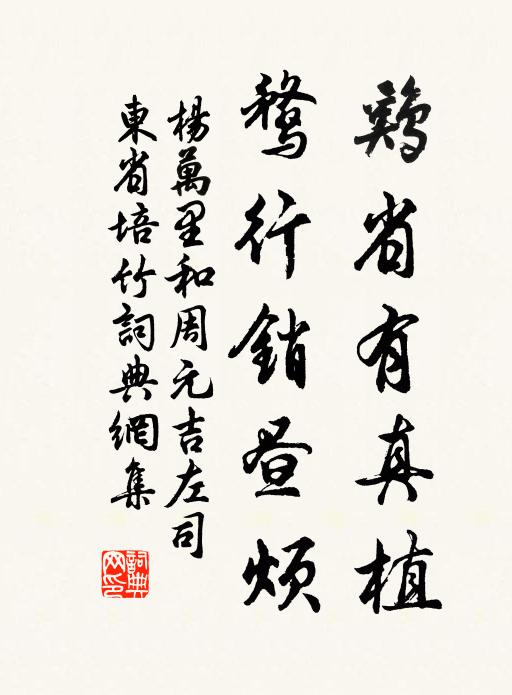 鷄省有真植
鶩行銷昼煩
楊萬里和周元吉左司
東省培竹詞典網集
詞典网印